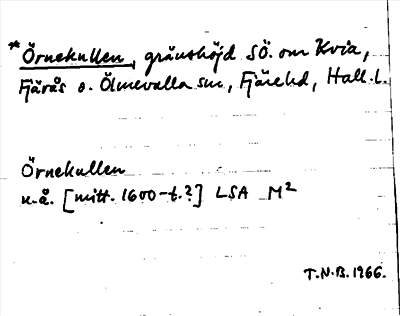 *Örnekullen, gränshöjd SÖ. om Kvia,
Fjärås o. Ölmevalla snr, Fjäre hd, Hall. l.
Örnekullen
u.å. [mitt. 1600-t.?] LSA M2
T.N.B. 1966.